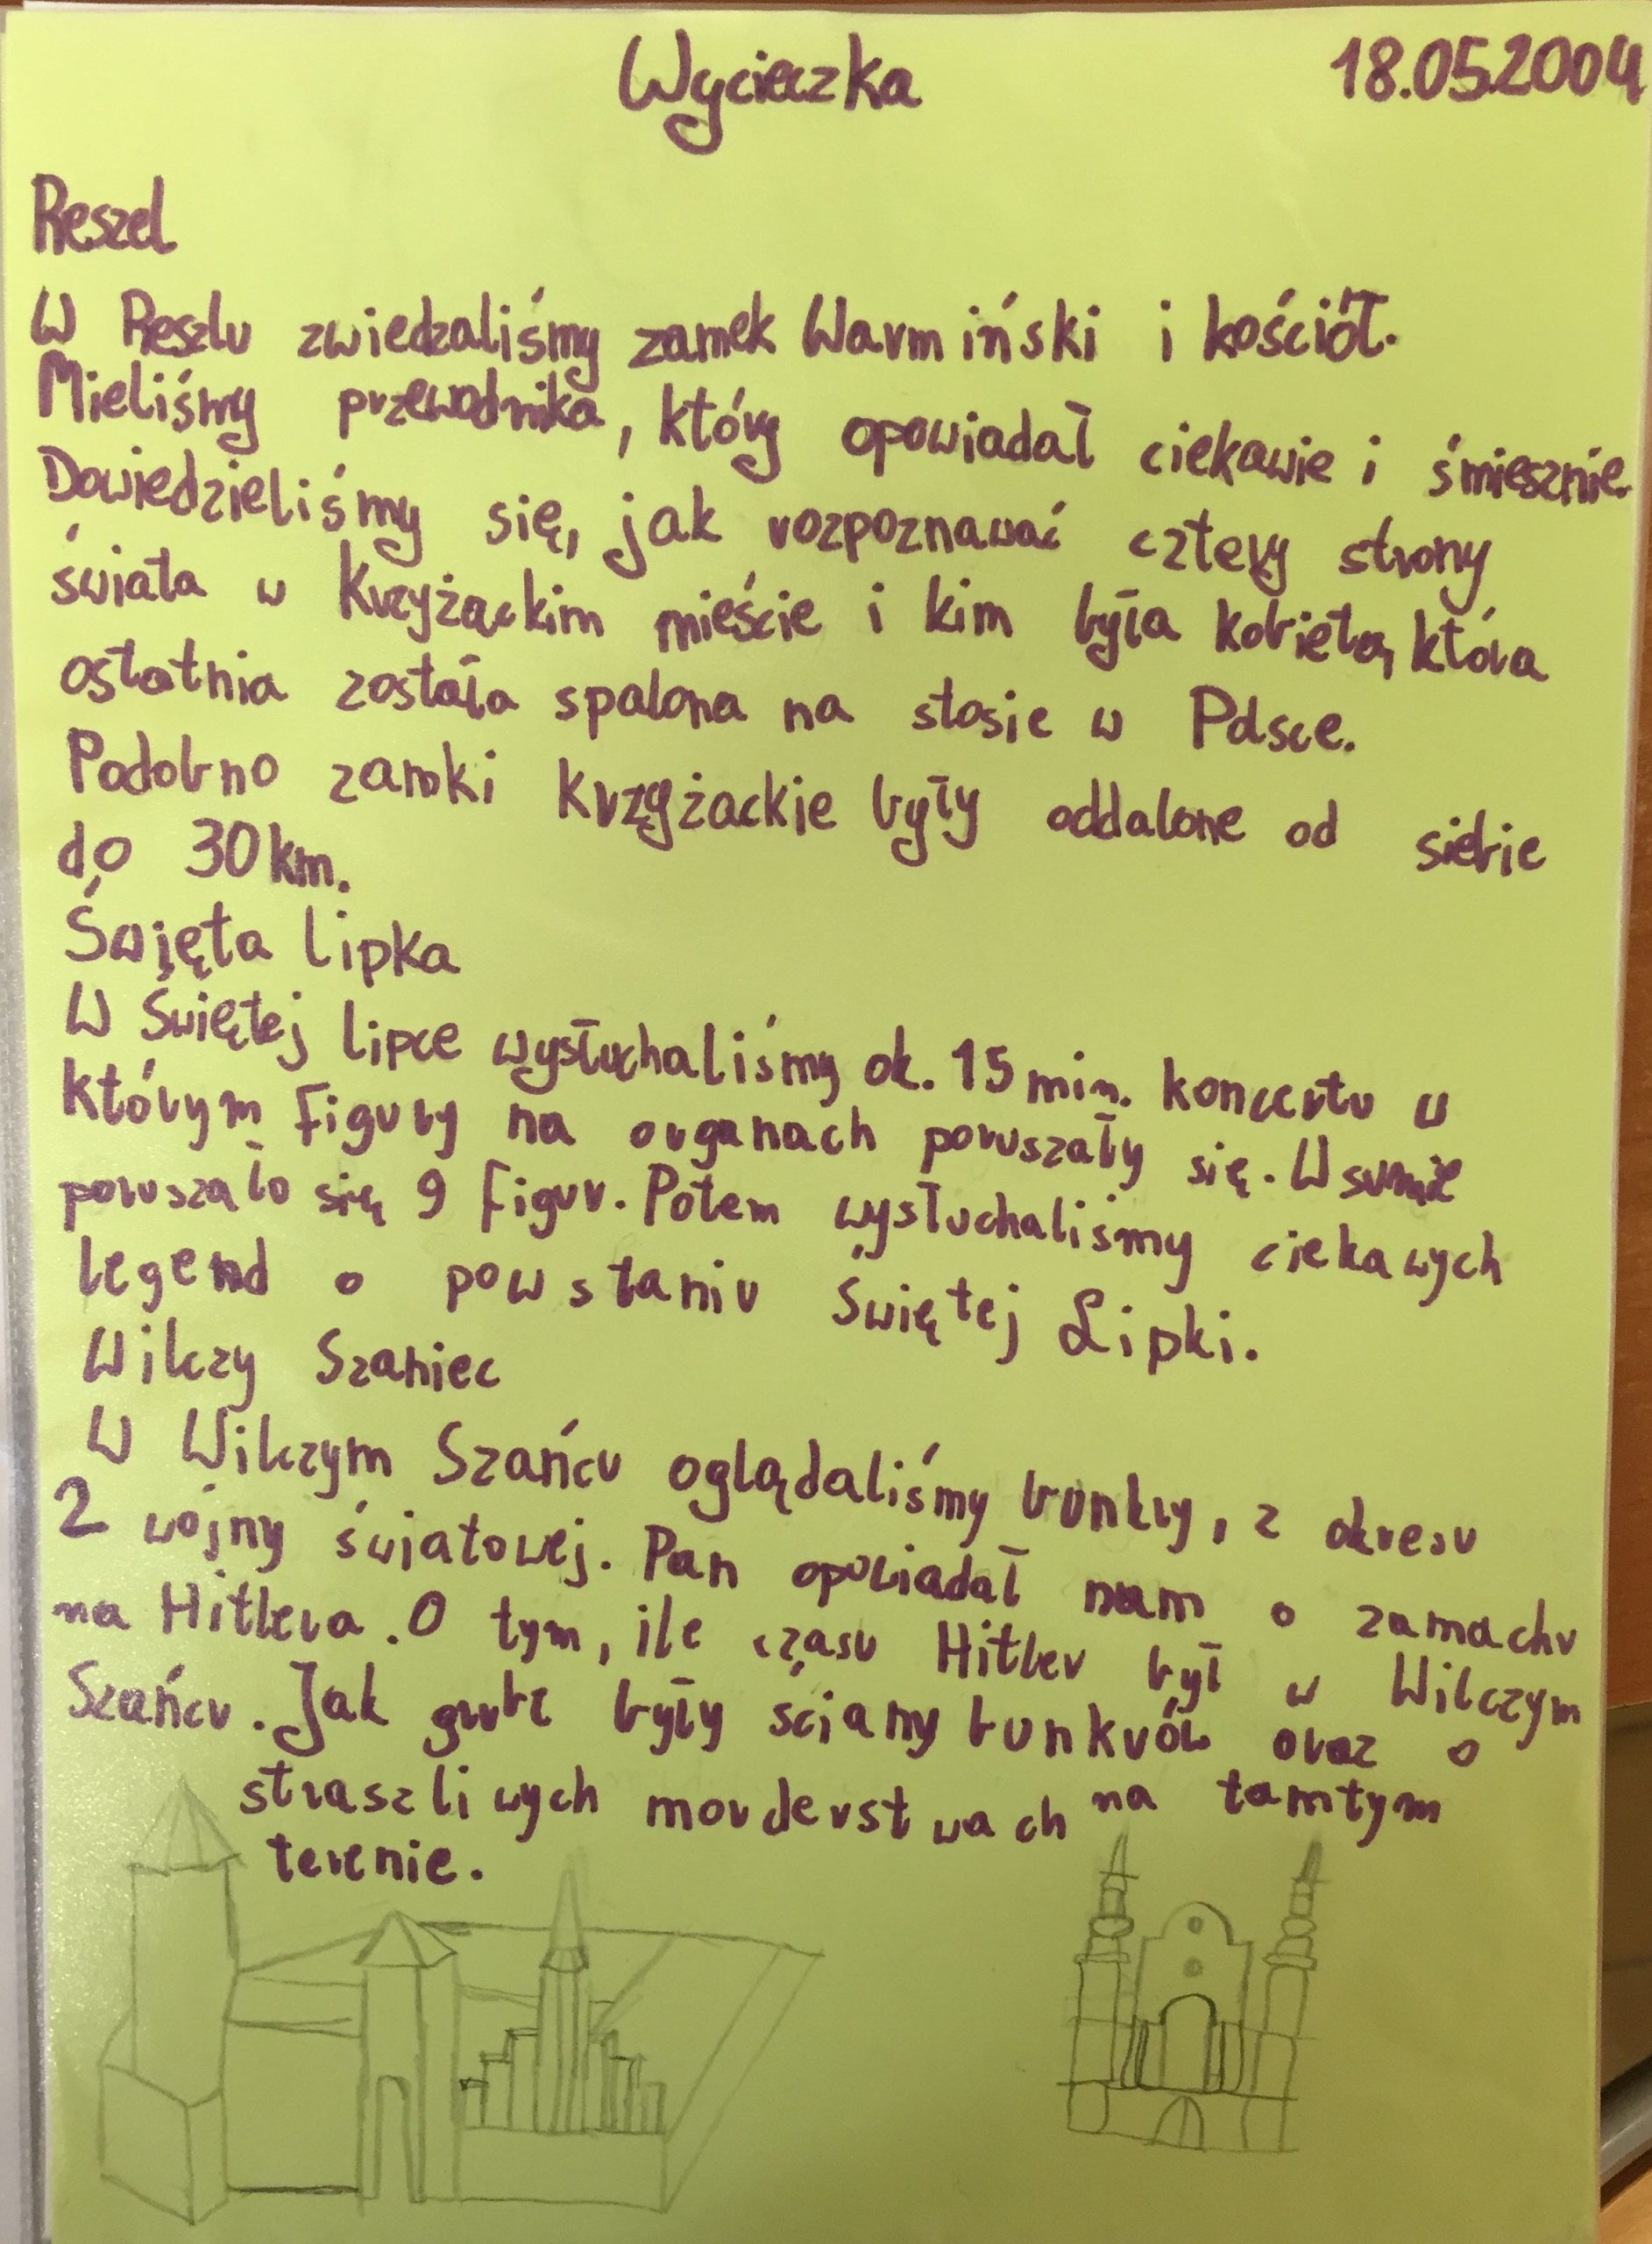 Wycieczka 18.05.2004
Reszel
W Reszlu zwiedzaliśmy zamek Warmiński i kościół.
Mieliśmy przewodnika, który opowiadał ciekawie i śmiesznie.
Dowiedzieliśmy się, jak rozpoznawać cztery strony
świata w Krzyżackim mieście i kim była kobieta, która
ostatnia została spalona na stosie w Polsce.
Podobno zamki Krzyżackie były oddalone od siebie
do 30 km.
Święta Lipka
W Świętej Lipce wysłuchaliśmy ok. 15 min. koncertu w
którym figury na organach poruszały się. W sumie
poruszało się 9 figur. Potem wysłuchaliśmy ciekawych
legend o powstaniu Świętej Lipki.
Wilczy Szaniec
W Wilczym Szańcu oglądaliśmy bunkry, z okresu
2 wojny światowej. Pan opowiadał nam o zamachu
na Hitlera. O tym, ile czasu Hitler był w Wilczym
Szańcu. Jak grube były ściany bunkrów oraz o
straszliwych morderstwach na tamtym
terenie.